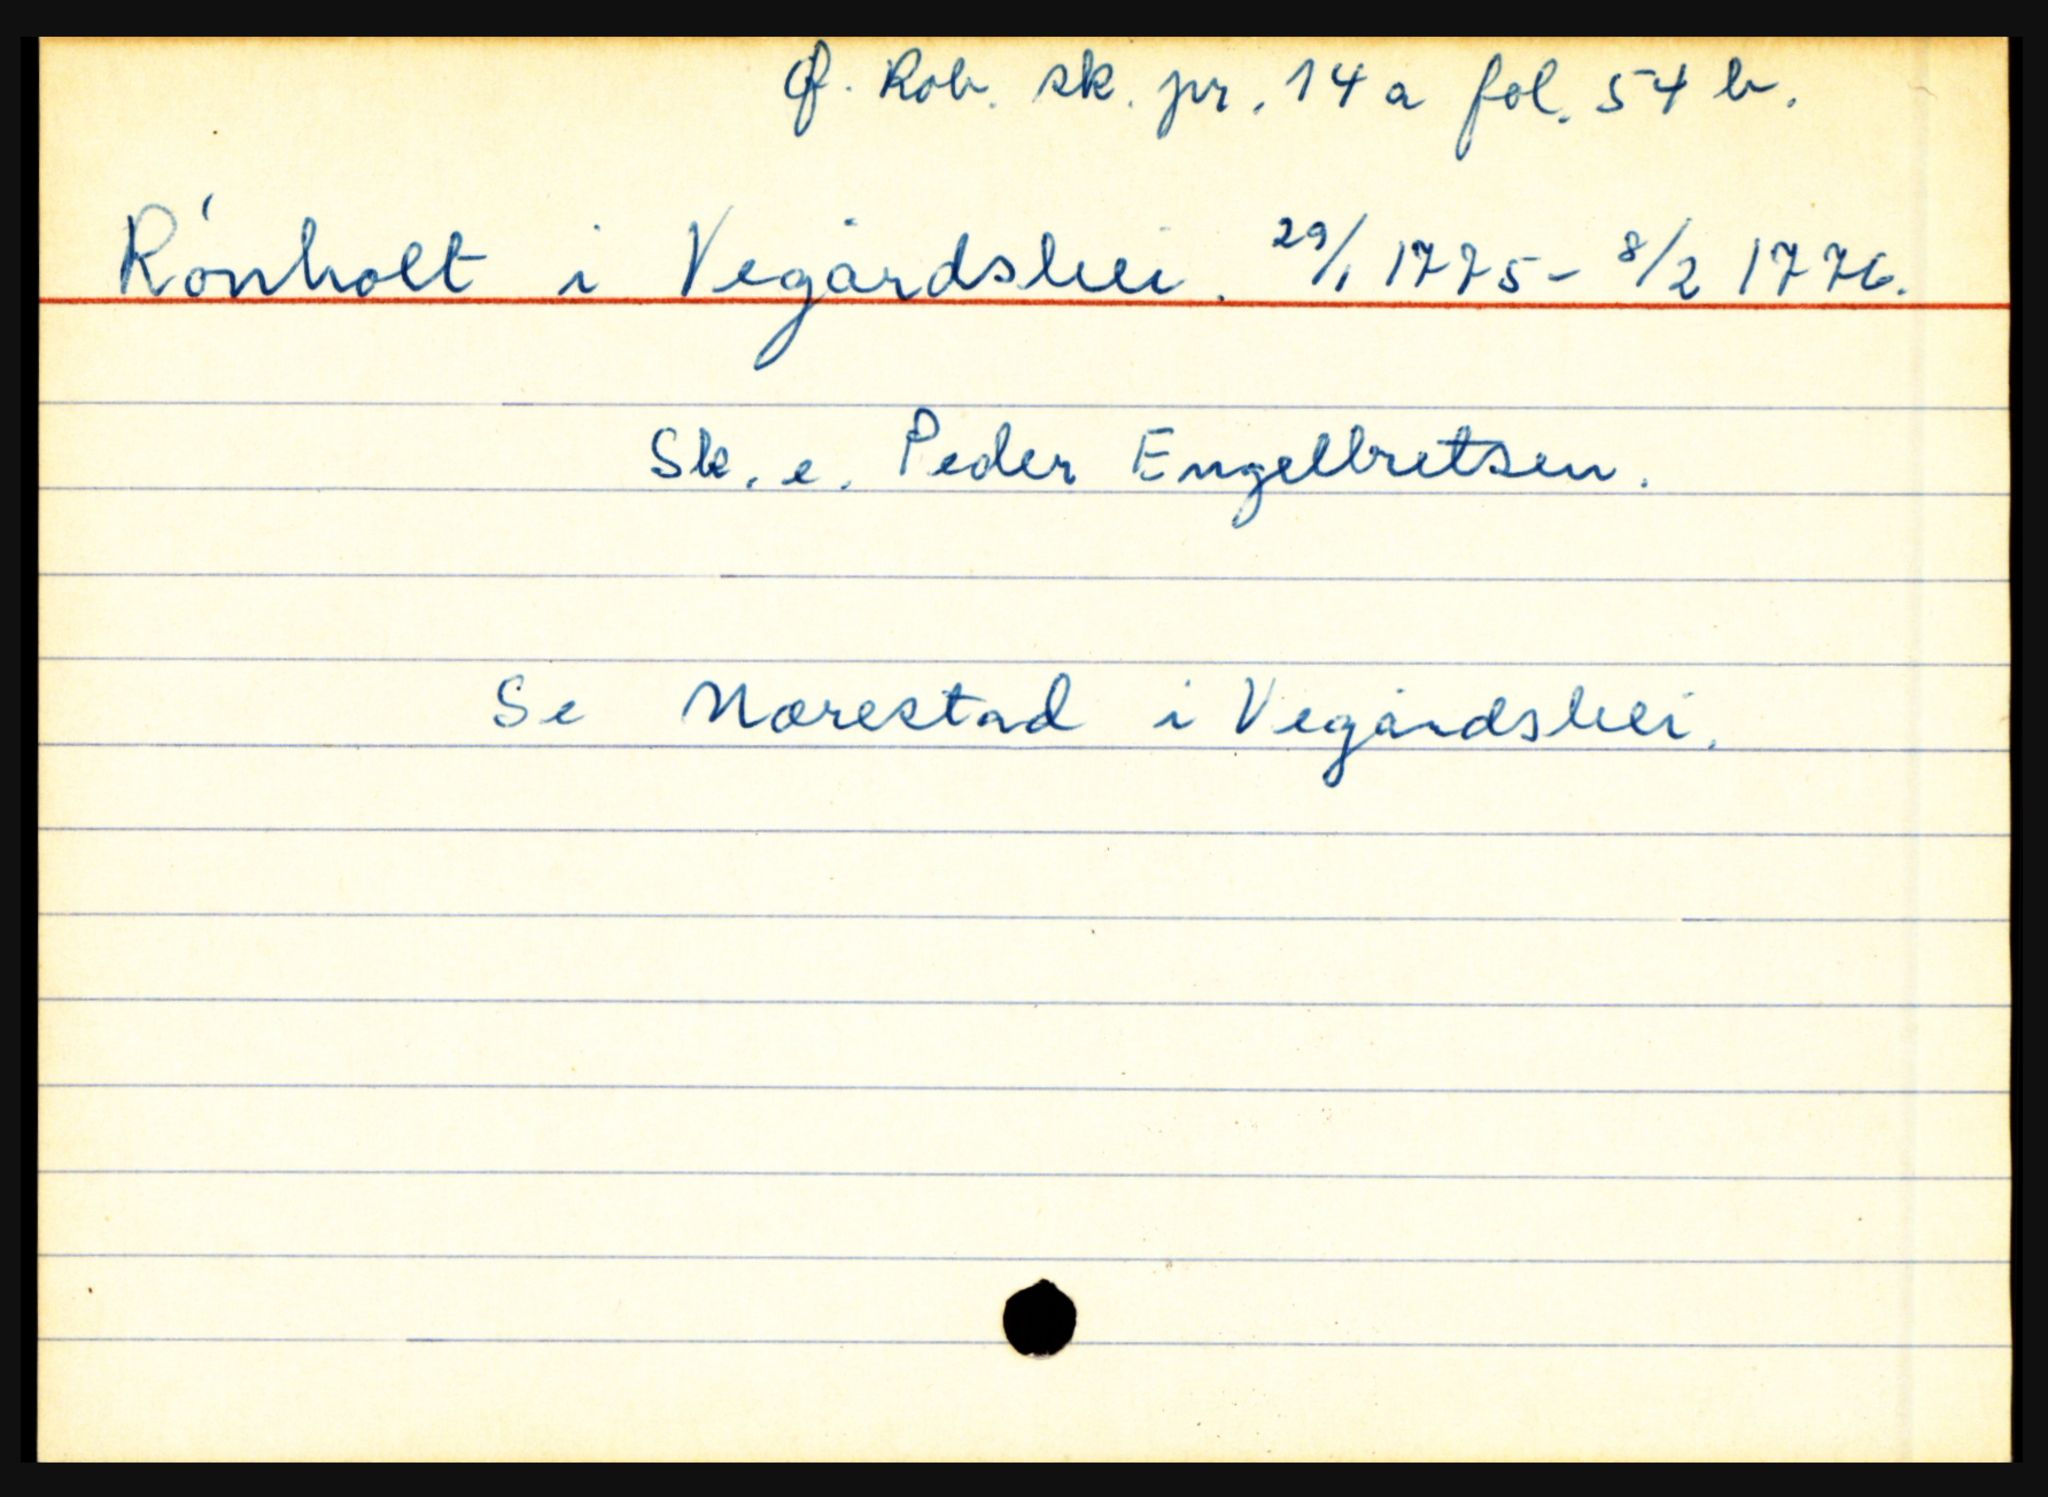 Ø. Rob. sk. pr. 14 a fol. 54 b.
Rónholt i Vegårdshei. 29/1 1775 - 8/2 1776.
Sk. e. Peder Engelbretsen.
Se Nærestad i Vegårdshei.